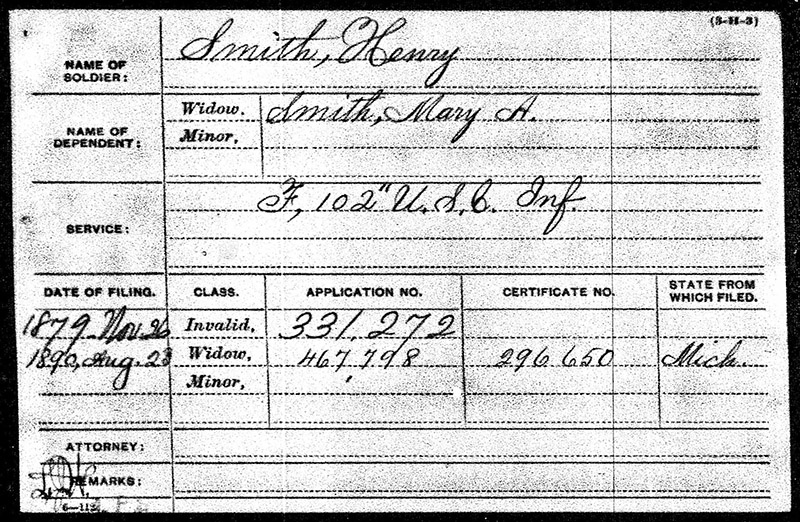 (3-H-3)
NAME OF SOLDIER: Smith, Henry
NAME OF DEPENDENT: Widow, Smith, Mary A.
Minor,
SERVICE: F, 102" U. S. C. Inf.
DATE OF FILING. CLASS. APPLICATION NO. CERTIFICATE NO. STATE FROM WHICH FILED.
1879 Nov. 26 Invalid, 331,272
1890, Aug. 23 Widow, 467 798 296 650 Mich.
Minor,
ATTORNEY:
REMARKS:
6—112